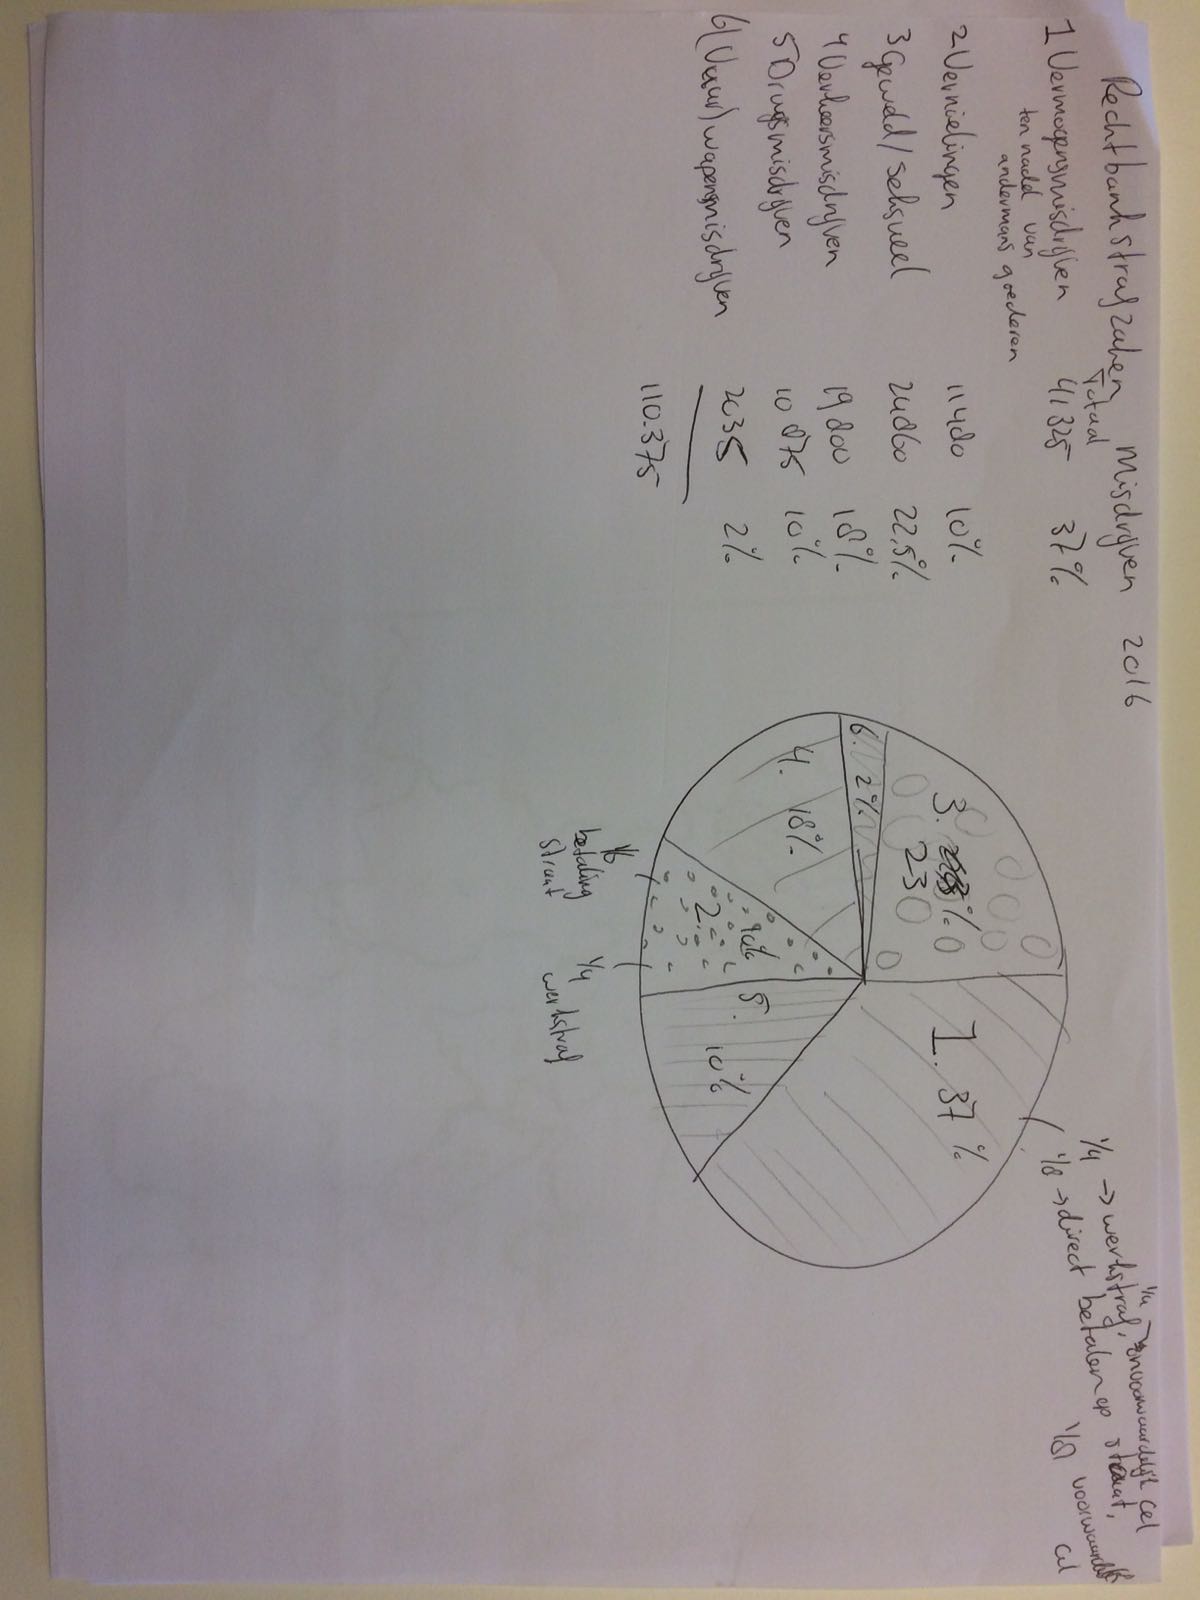 Rechtbankstrafzaken Misdrijven 2016
Totaal
1 Vermogensmisdrijven 41325 37%
ten nadel van
andermans goederen
2 Vernielingen 11480 10%
3 Geweld/seksueel 24860 22,5%
4 Verkeersmisdrijven 19800 18%
5 Drugsmisdrijven 10875 10%
6 (Vuur)wapensmisdrijven 2035 2%
110.375
1/4 → werkstraf, 1/4 → onvoorwaardelijk cel
1/8 → direct betalen op straat,
1/8 voorwaardelijk
cel
1. 37%
3. %
23
6. 2%.
4. 18%.
10%
2.
5.
10%
1/6
betaling
straat
1/4
werkstraf